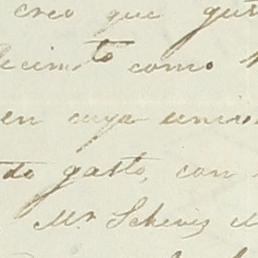 creo que gus
ecimto como
en cuya unio
do gasto, con
Mr. Scheviz